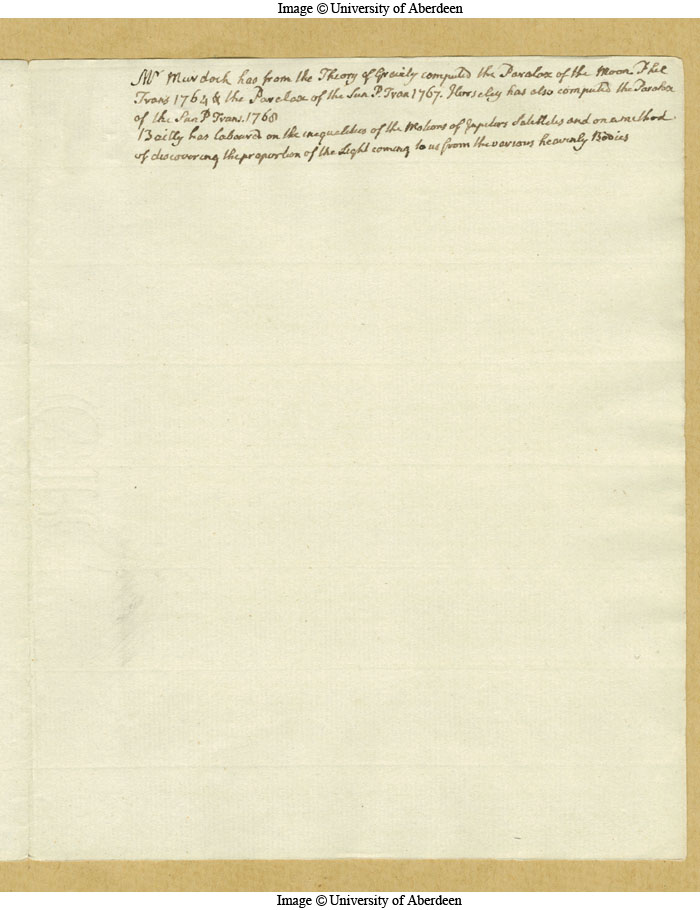 Image © University of Aberdeen
Mr Murdock has from the Theory of Gravity computed the Paralax of the Moon Phil
Trans 1764 & the Paralax of the Sun P. Tran 1767. Horseley has also computed the Paralax
of the Sun P Trans. 1768
Bailly has laboured on the inequalities of the Motions of Jupiters Satellites and on a method
of discovering the proportion of the Light coming to us from the various heavenly Bodies
Image © University of Aberdeen